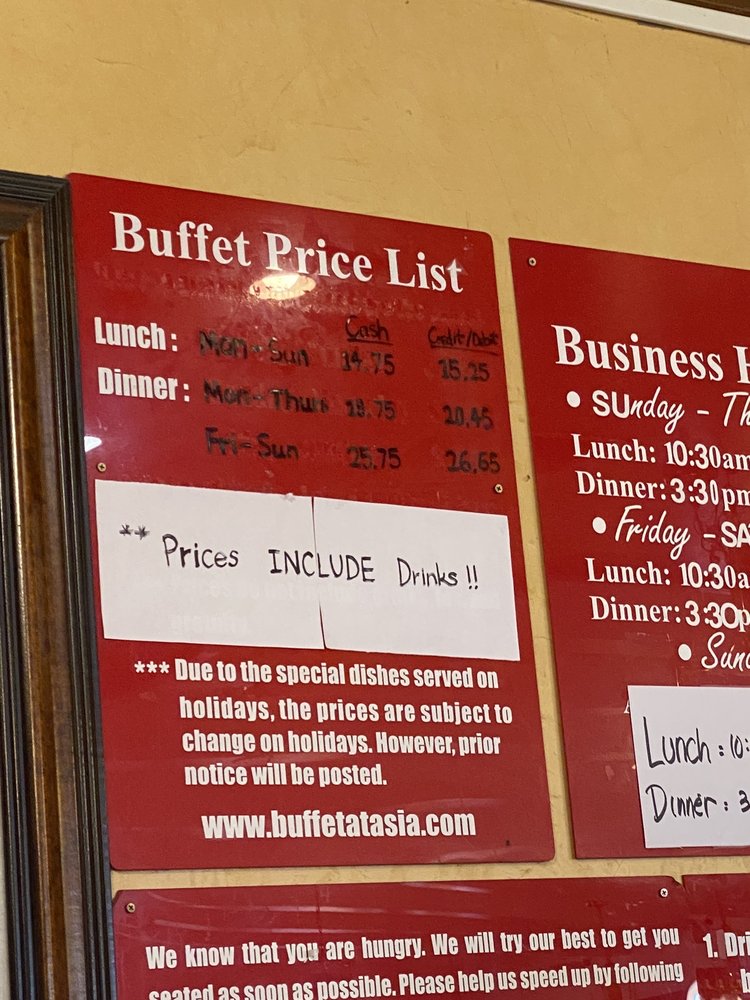 Buffet Price List
Cash Credit/Debit
Lunch: Mon-Sun 14.75 15.25
Dinner: Mon-Thurs 19.75 20.45
Fri-Sun 25.75 26.65
** Prices INCLUDE Drinks!!
*** Due to the special dishes served on
holidays, the prices are subject to
change on holidays. However, prior
notice will be posted.
www.buffetatasia.com
Business
• SUnday - Th
Lunch: 10:30am
Dinner: 3:30pm
• Friday - SA
Lunch: 10:30a
Dinner: 3:30p
• Sund
Lunch: 10:
Dinner: 3
We know that you are hungry. We will try our best to get you
seated as soon as possible. Please help us speed up by following
1. Dri